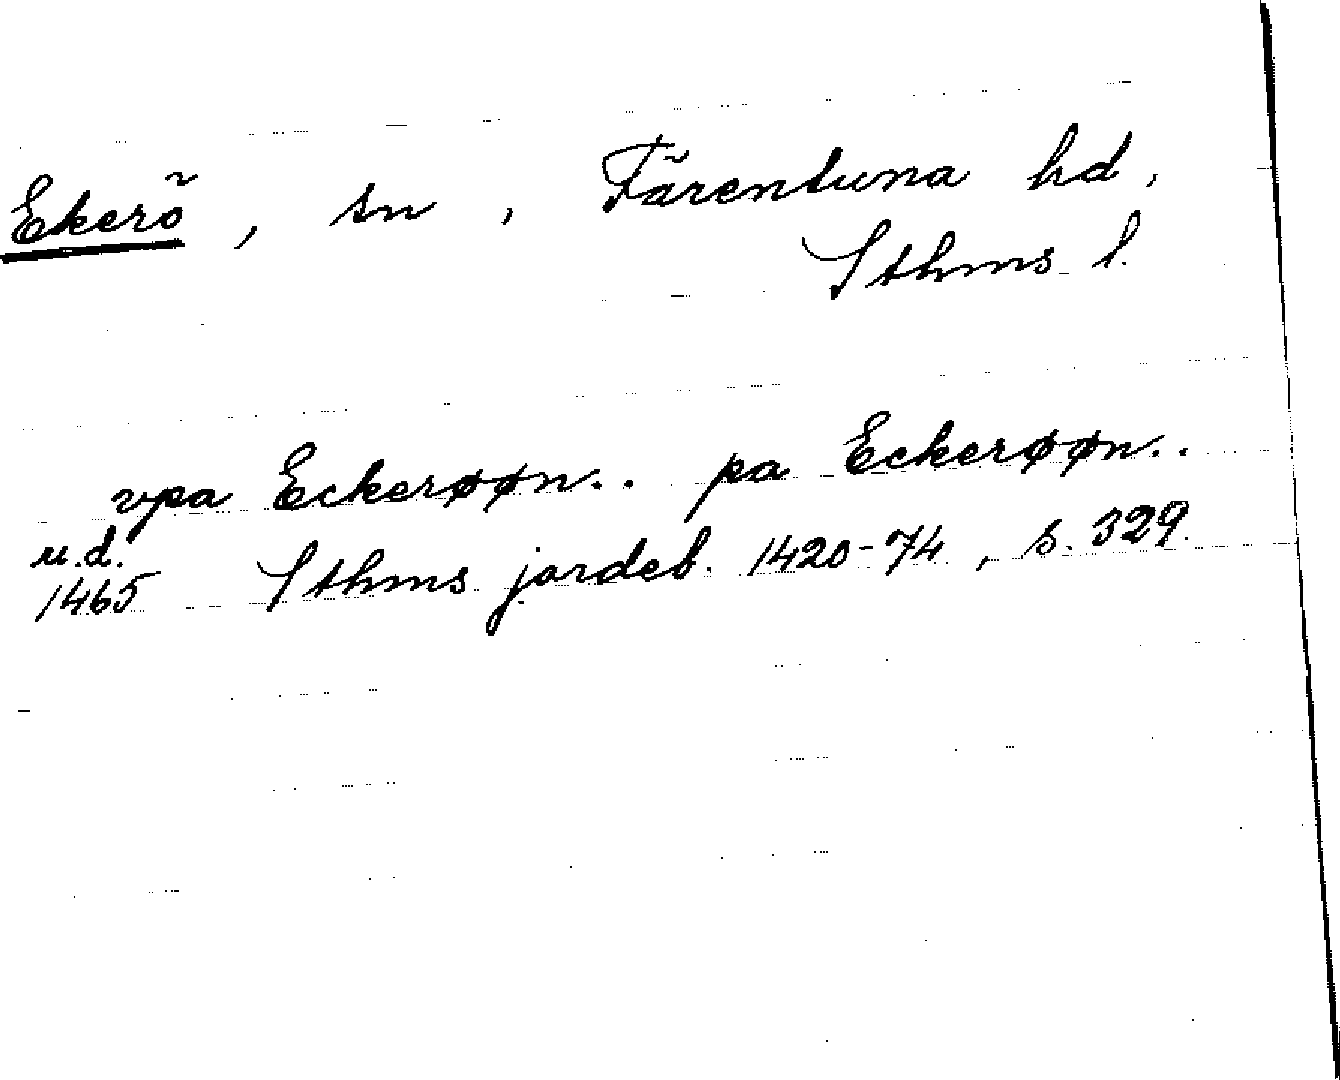 Ekerö, sn, Färentuna hd,
Sthms l.
vpa Eckerøøn.. pa Eckerøøn..
u.d.
1465 Sthms jordeb. 1420-74, s. 329.